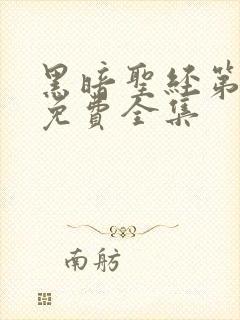 黑暗聖經第
免費全集
南舫